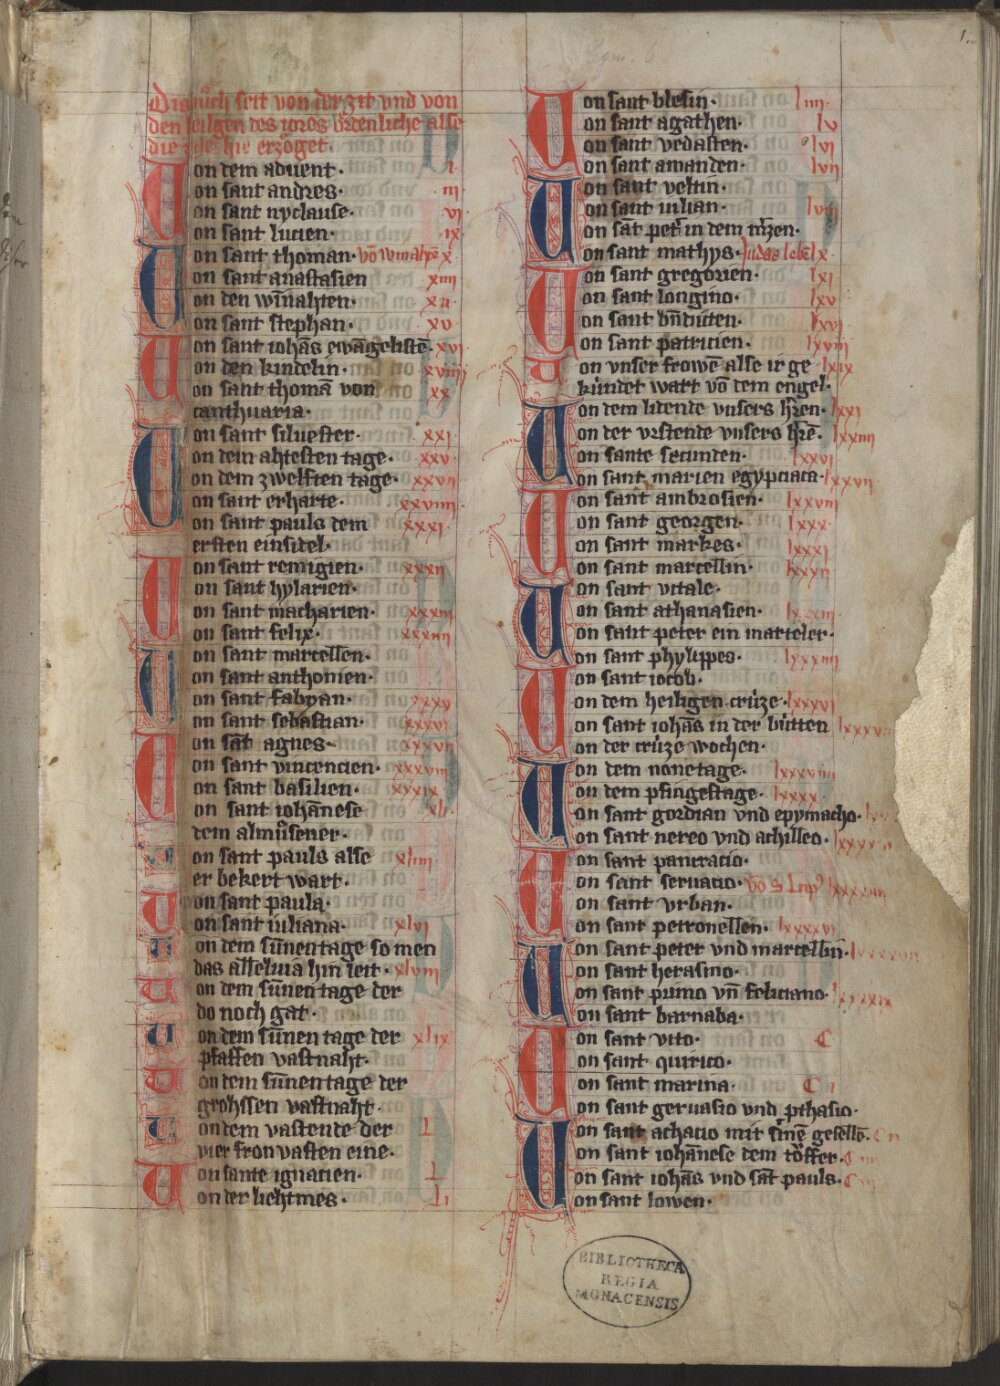 Dis bůch seit von der zit vnd von
den heilgen des iores ordenliche alse
die hie erzöget.
Von dem aduent. i.
on sant andres. iii
on sant nyclause. vi
on sant lucien. ix
Von sant thoman. x
on sant anastasien xiii
on den winahten. xii
on sant stephan. xv
Von sant iohās ewāgelistē. xvi
on den kindelin. xviiii
on sant thomā von xx
canthuaria.
Von sant siluester. xxi
on dem ahtesten tage. xxv
on dem zwelften tage. xxvii
on sant erharte. xxviiii
on sant pauls dem xxxi
ersten einsidel.
Von sant remigien. xxxii
on sant hylarien.
on sant macharien. xxxiii
on sant felix. xxxiiii
Von sant marcellen.
on sant anthonien.
on sant fabyan. xxxv
on sant sebastian. xxxvi
Von sāt agnes xxxvii
on sant vincencien. xxxviii
on sant basilien. xxxix
on sant iohānese xli
dem almůsener.
Von sant pauls alse xliiii
er bekert wart.
Von sant paula.
on sant iuliana. xlvi
Von dem sūnentage so men
das alleluia hin leit. xlviii
Von dem sūnentage der
do noch gat.
Von dem sūnen tage der xlix
pfaffen vastnaht.
Von dem sūnentage der
grohssen vastnaht.
Von dem vastende der L
vier fronvasten eine.
Von sante ignacien. L
on der lichtmes. Li
Von sant blesin. liiii
on sant agathen. lv
on sant vedasten. lvi
on sant amanden. lvii
Von sant veltin.
on sant iulian. lviii
on sāt pet' in dem m'zen.
on sant mathys. lx
Von sant gregorien. lxi
on sant longino. lxv
on sant bn̄dicten. lxvi
on sant patricien. lxviii
Von vnser frowē alse ir ge lxix
kúndet wart vō dem engel.
Von dem lidende vnsers h'ren. lxxi
on der vrstende vnsers h'rē. lxxiiii
on sante secunden. lxxvi
on sant marien egypciaca. lxxvii
Von sant ambrosien. lxxviii
on sant georgen. lxxx
on sant markes. lxxxi
on sant marcellin. lxxxii
Von sant vitale.
on sant athanasien. lxxxiii
on sant peter ein marteler.
on sant phylippes. lxxxiiii
Von sant iocob.
on dem heiligen crúze. lxxxvi
on sant iohās in der bútten
on der crúze wochen.
Von dem nonetage. lxxxviiii
on dem pfingestage. lxxxx
on sant gordian vnd epymacho.
on sant nereo vnd achilleo.
Von sant pancracio.
on sant seruacio.
on sant vrban.
on sant petronellen. lxxxxvi
Von sant peter vnd marcellin.
on sant herasmo.
on sant primo vn̄ feliciano. lxxxxix
on sant barnaba.
Von sant vito. C
on sant quirico.
on sant marina. C i
on sant geruasio vnd pthasio.
Von sant achacio mit sinē gesellē. C ii
on sant iohānese dem töffer. C iii
on sant iohās vnd sāt pauls.
on sant lowen.
BIBLIOTHECA
REGIA
MONACENSIS